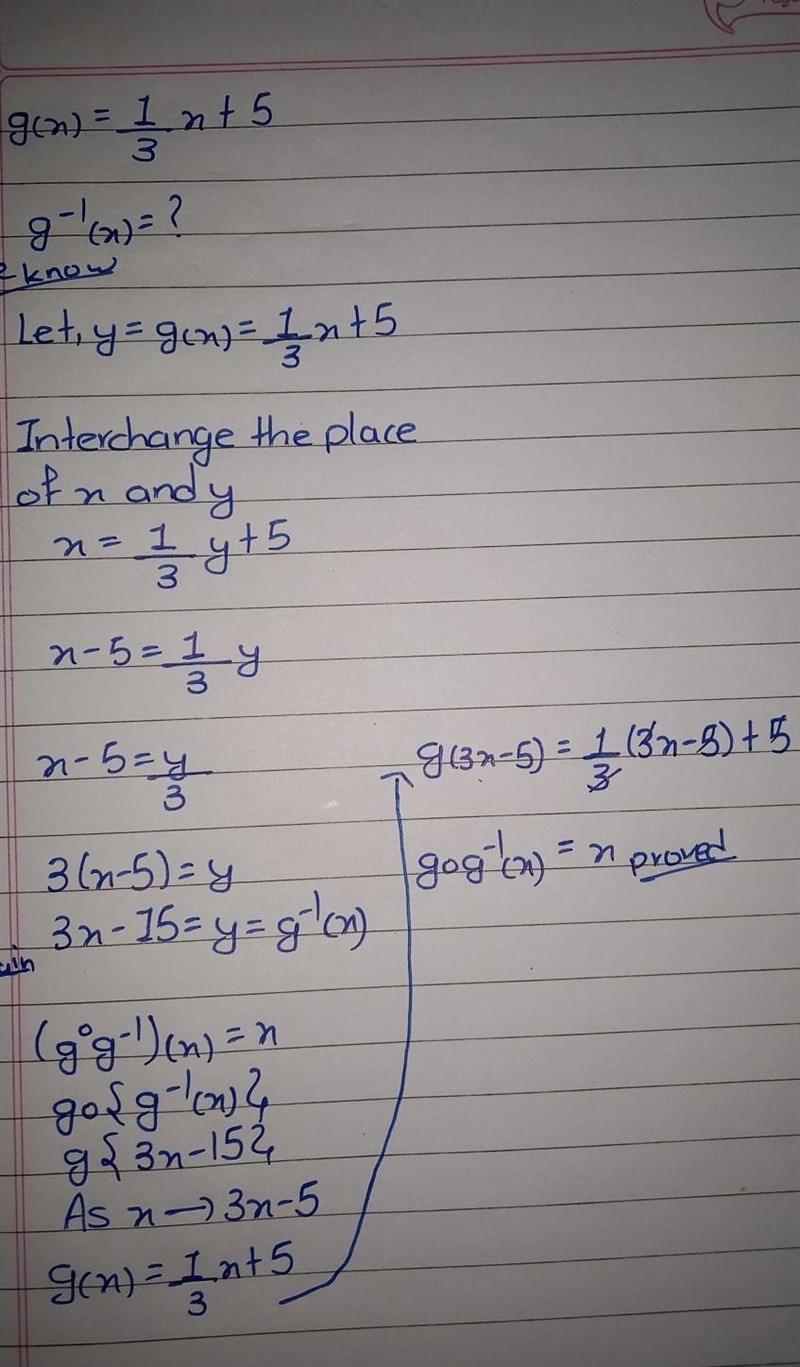 g(x) = 1/3 x + 5
g⁻¹(x) = ?
know
Let, y = g(x) = 1/3 x + 5
Interchange the place
of x and y
x = 1/3 y + 5
x - 5 = 1/3 y
x - 5 = y/3
3(x-5) = y
3x - 15 = y = g⁻¹(x)
(g°g⁻¹)(x) = x
go{g⁻¹(x)}
g{3x-15}
As x → 3x-5
g(x) = 1/3 x + 5
g(3x-5) = 1/3 (3x-5) + 5
gog⁻¹(x) = x proved